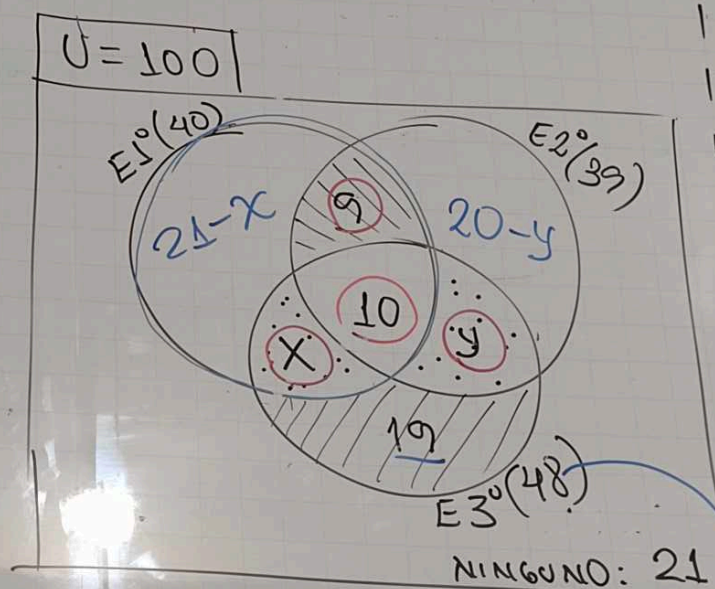 U = 100
E1°(40)
E2°(39)
9
21-x
20-y
10
x
y
19
E3°(48)
NINGUNO: 21